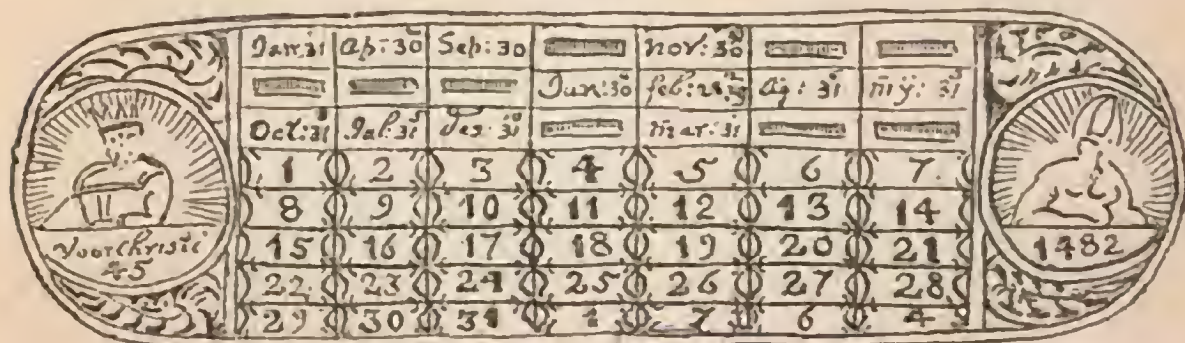 Jan:31 Ap:30 Sep:30 nov:30
Jun:30 feb:28 Ag: 31 mÿ: 31
Oct:31 Jul:31 Des:31 mar:31
1 2 3 4 5 6 7
8 9 10 11 12 13 14
15 16 17 18 19 20 21
22 23 24 25 26 27 28
29 30 31 1 7 6 4
Voor Christi
45
1482